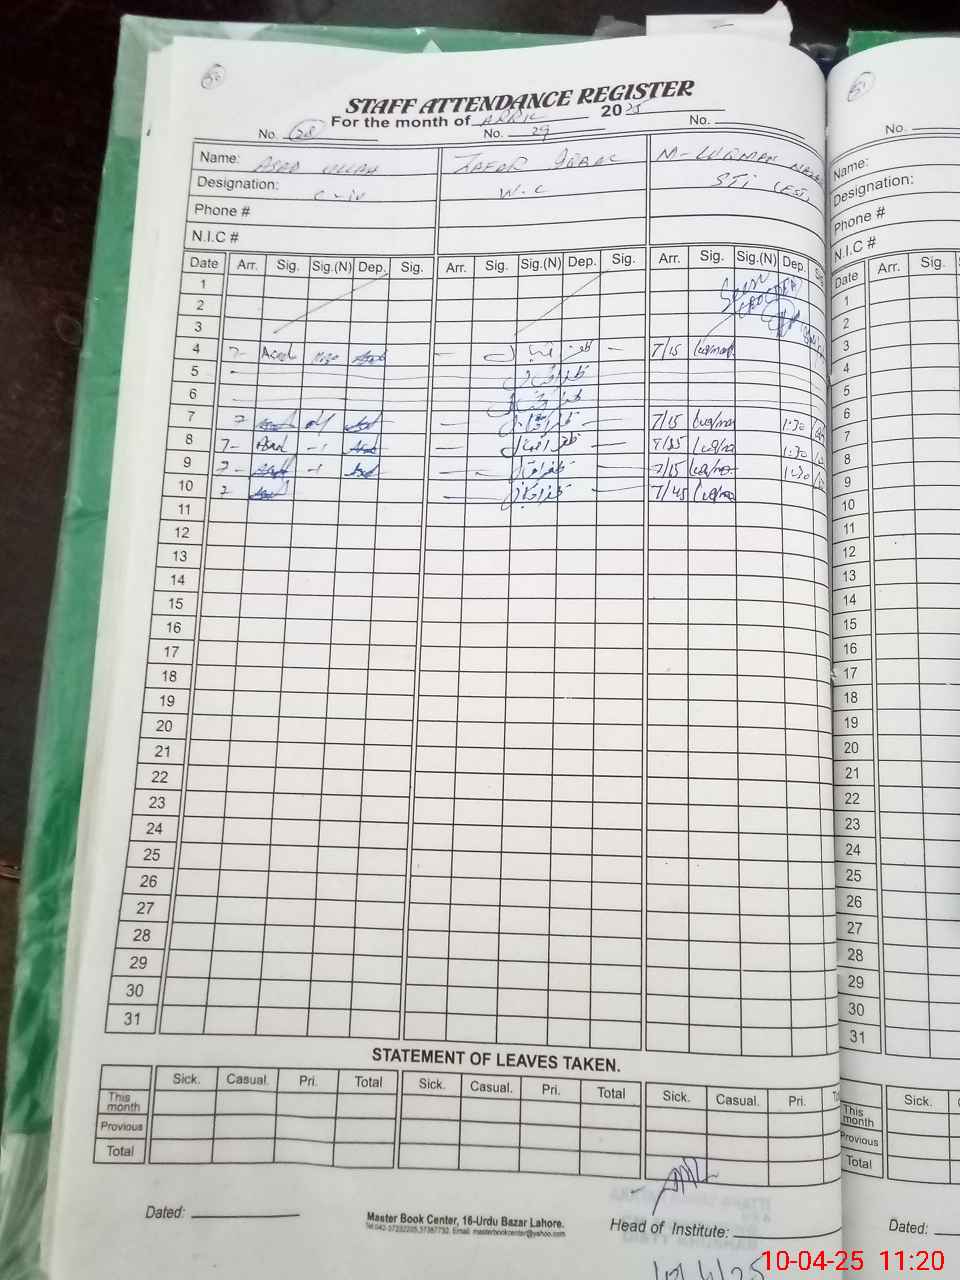 50
51
STAFF ATTENDANCE REGISTER
For the month of APRIL 2025
No. 28 No. 29 No.
No.
Name: ASAD ULLAH ZAFAR IQBAL M-LUQMAN
Designation: C-IV W.C STI
Phone #
N.I.C #
Name:
Designation:
Phone #
N.I.C #
Date Arr. Sig. Sig.(N) Dep. Sig. Arr. Sig. Sig.(N) Dep. Sig. Arr. Sig. Sig.(N) Dep.
Date Arr. Sig.
1
2
3
4 7- Asad — ظفر اقبال — 7/15 Luqman
5 ظفر اقبال
6 ظفر اقبال
7 7- Asad — ظفر اقبال — 7/15 Luqman 1:30
8 7- Asad -1 Asad — ظفر اقبال — 7/35 Luqman 1:30
9 7- Asad -1 Asad — ظفر اقبال — 7/15 Luqman 1:30
10 7 Asad — ظفر اقبال — 7/45 Luqman
11
12
13
14
15
16
17
18
19
20
21
22
23
24
25
26
27
28
29
30
31
1
2
3
4
5
6
7
8
9
10
11
12
13
14
15
16
17
18
19
20
21
22
23
24
25
26
27
28
29
30
31
STATEMENT OF LEAVES TAKEN.
Sick. Casual. Pri. Total Sick. Casual. Pri. Total Sick. Casual. Pri.
This month
Previous
Total
Sick.
This month
Previous
Total
Dated:
Master Book Center, 16-Urdu Bazar Lahore.
Tel:042-37232205,37367730. Email: masterbookcenter@yahoo.com
Head of Institute:
Dated:
10/4/25
10-04-25 11:20